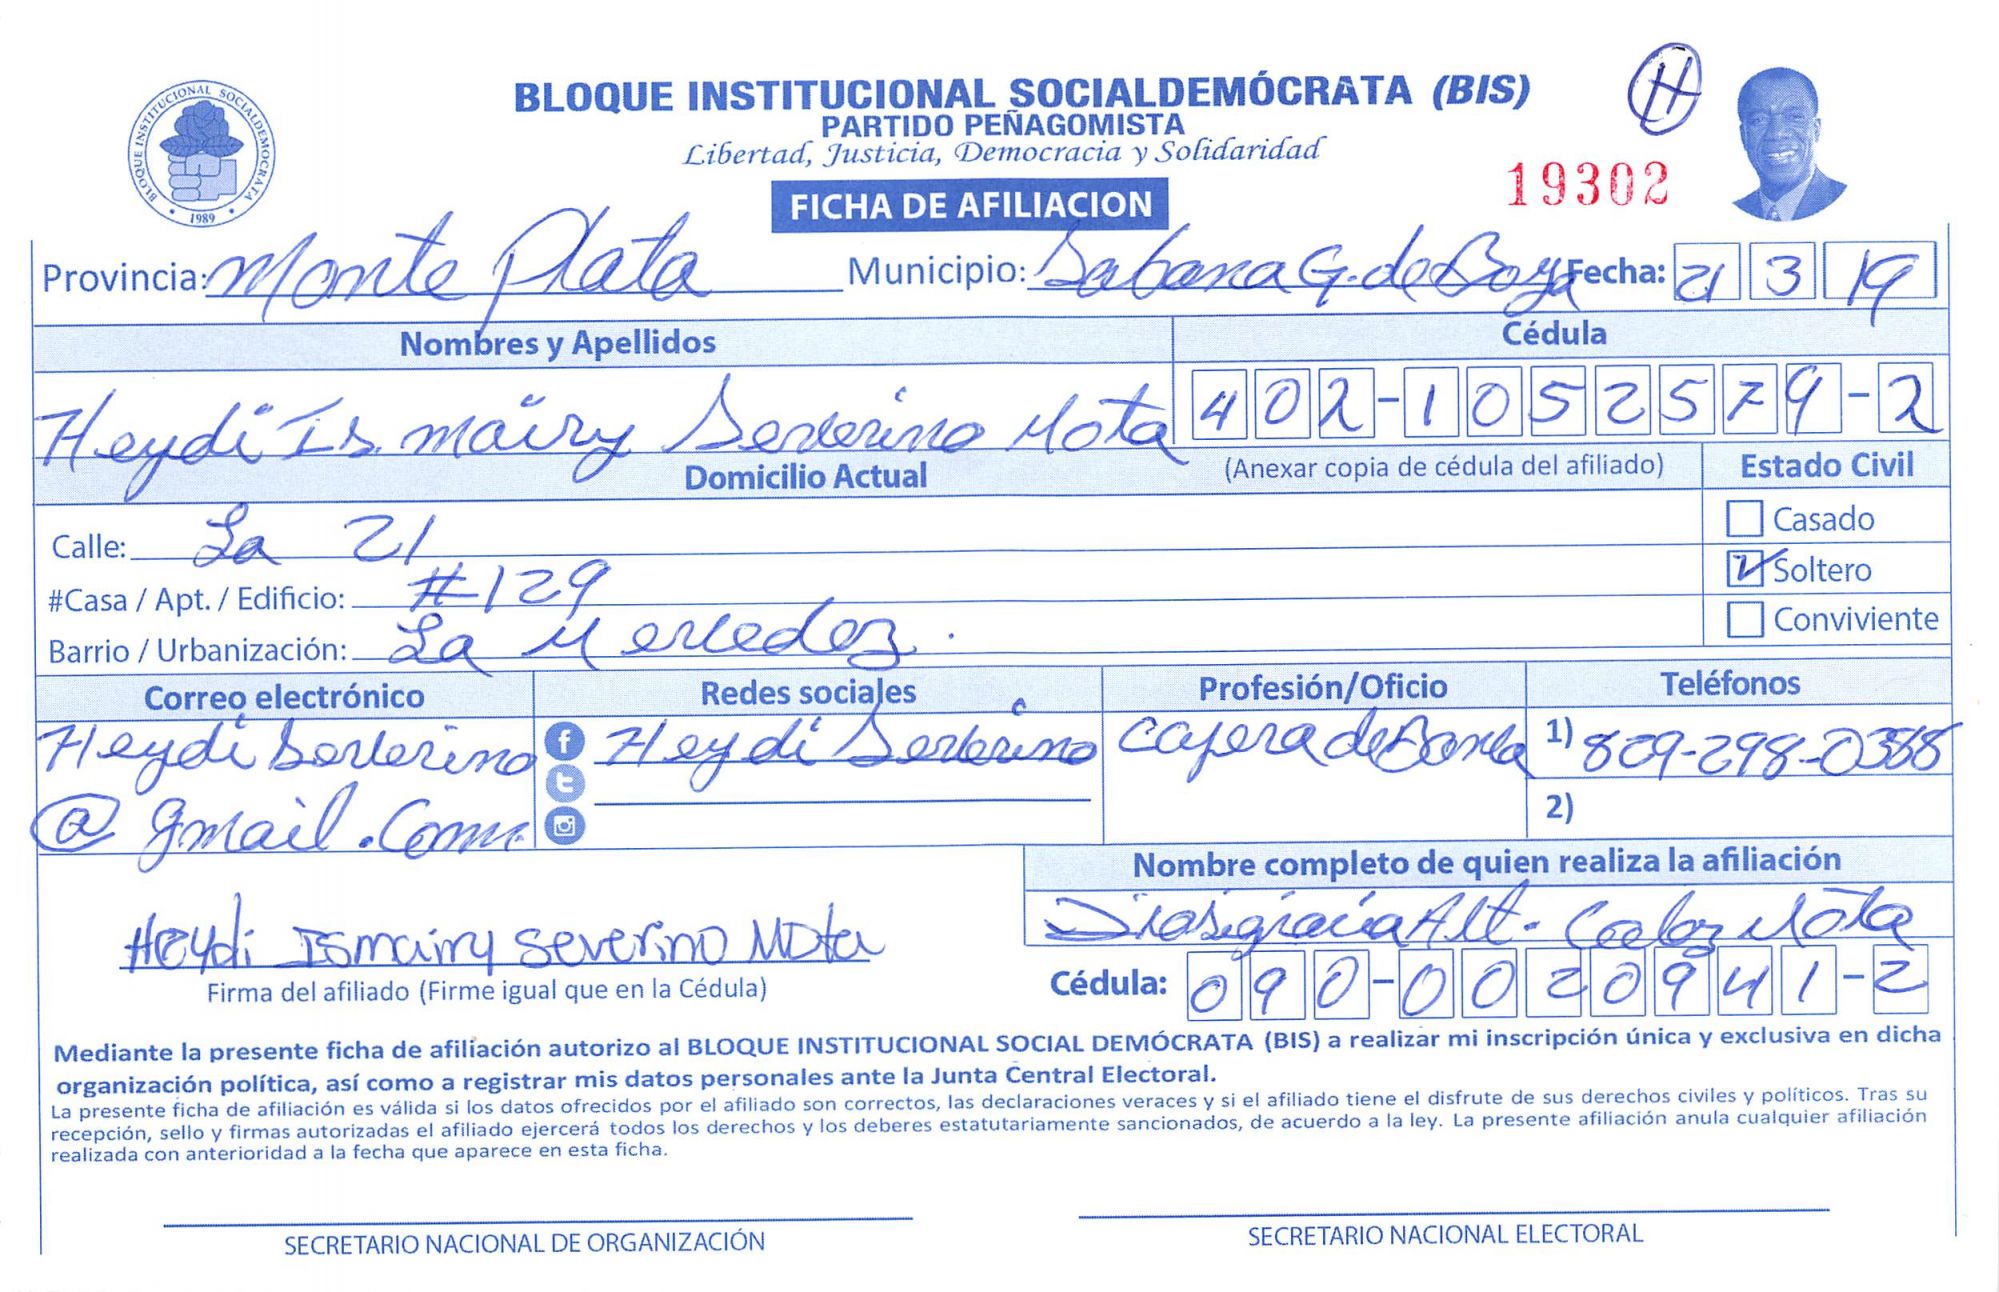 BLOQUE INSTITUCIONAL SOCIALDEMOCRATA
1989
BLOQUE INSTITUCIONAL SOCIALDEMÓCRATA (BIS)
PARTIDO PEÑAGOMISTA
Libertad, Justicia, Democracia y Solidaridad
FICHA DE AFILIACION
H
19302
Provincia: Monte Plata Municipio: Sabana G. de Boya Fecha: 21 3 19
Nombres y Apellidos Cédula
Heydi Ismairy Severino Mota 402-1052579-2
Domicilio Actual (Anexar copia de cédula del afiliado) Estado Civil
Calle: La 21 Casado
#Casa / Apt. / Edificio: #129 Soltero
Barrio / Urbanización: La Mercedez. Conviviente
Correo electrónico Redes sociales Profesión/Oficio Teléfonos
Heydi Severino Heydi Severino Cajera de Banca 1) 809-298-0388
@gmail.com. 2)
Nombre completo de quien realiza la afiliación
Alt. Mota
Heydi Ismairy Severino Mota
Cédula: 090-0020941-2
Firma del afiliado (Firme igual que en la Cédula)
Mediante la presente ficha de afiliación autorizo al BLOQUE INSTITUCIONAL SOCIAL DEMÓCRATA (BIS) a realizar mi inscripción única y exclusiva en dicha
organización política, así como a registrar mis datos personales ante la Junta Central Electoral.
La presente ficha de afiliación es válida si los datos ofrecidos por el afiliado son correctos, las declaraciones veraces y si el afiliado tiene el disfrute de sus derechos civiles y políticos. Tras su
recepción, sello y firmas autorizadas el afiliado ejercerá todos los derechos y los deberes estatutariamente sancionados, de acuerdo a la ley. La presente afiliación anula cualquier afiliación
realizada con anterioridad a la fecha que aparece en esta ficha.
SECRETARIO NACIONAL DE ORGANIZACIÓN SECRETARIO NACIONAL ELECTORAL